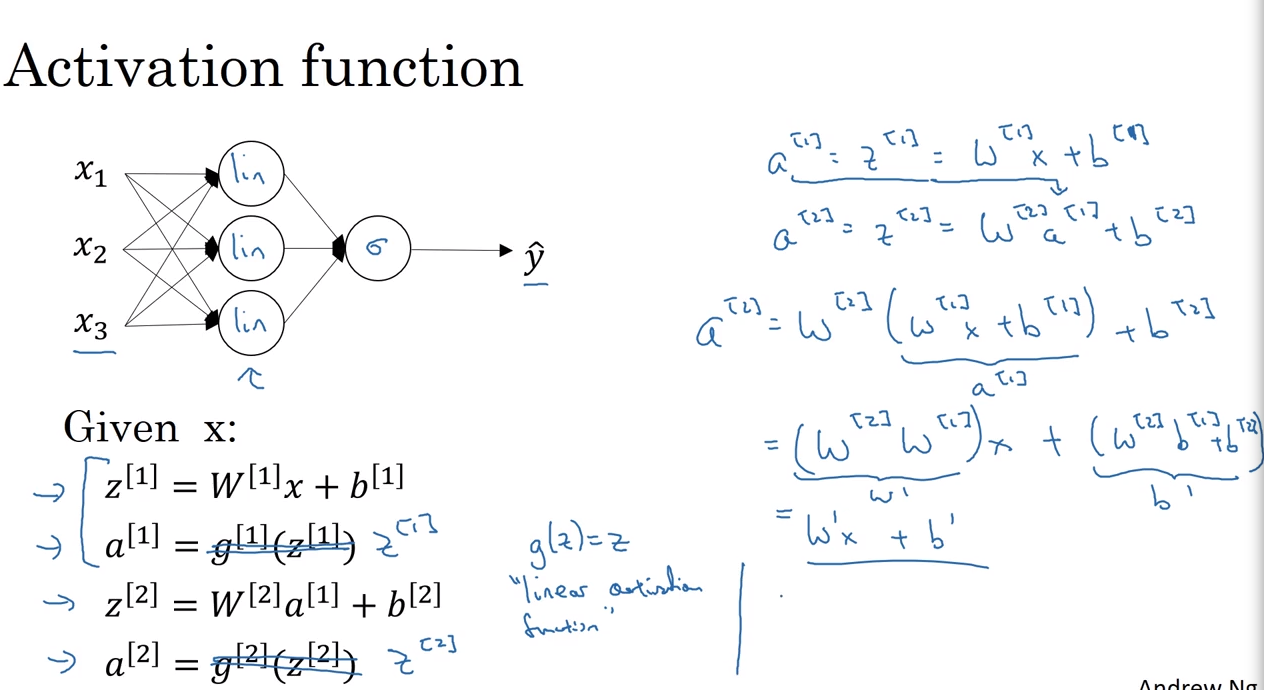 Activation function
x₁
x₂
x₃
lin
lin
lin
σ
ŷ
Given x:
z^[1] = W^[1]x + b^[1]
a^[1] = g^[1](z^[1]) z^[1]
z^[2] = W^[2]a^[1] + b^[2]
a^[2] = g^[2](z^[2]) z^[2]
g(z)=z
"linear activation
function"
a^[1] = z^[1] = W^[1]x + b^[1]
a^[2] = z^[2] = W^[2]a^[1] + b^[2]
a^[2] = W^[2](W^[1]x + b^[1]) + b^[2]
a^[1]
= (W^[2]W^[1])x + (W^[2]b^[1] + b^[2])
W' b'
= W'x + b'
Andrew Ng